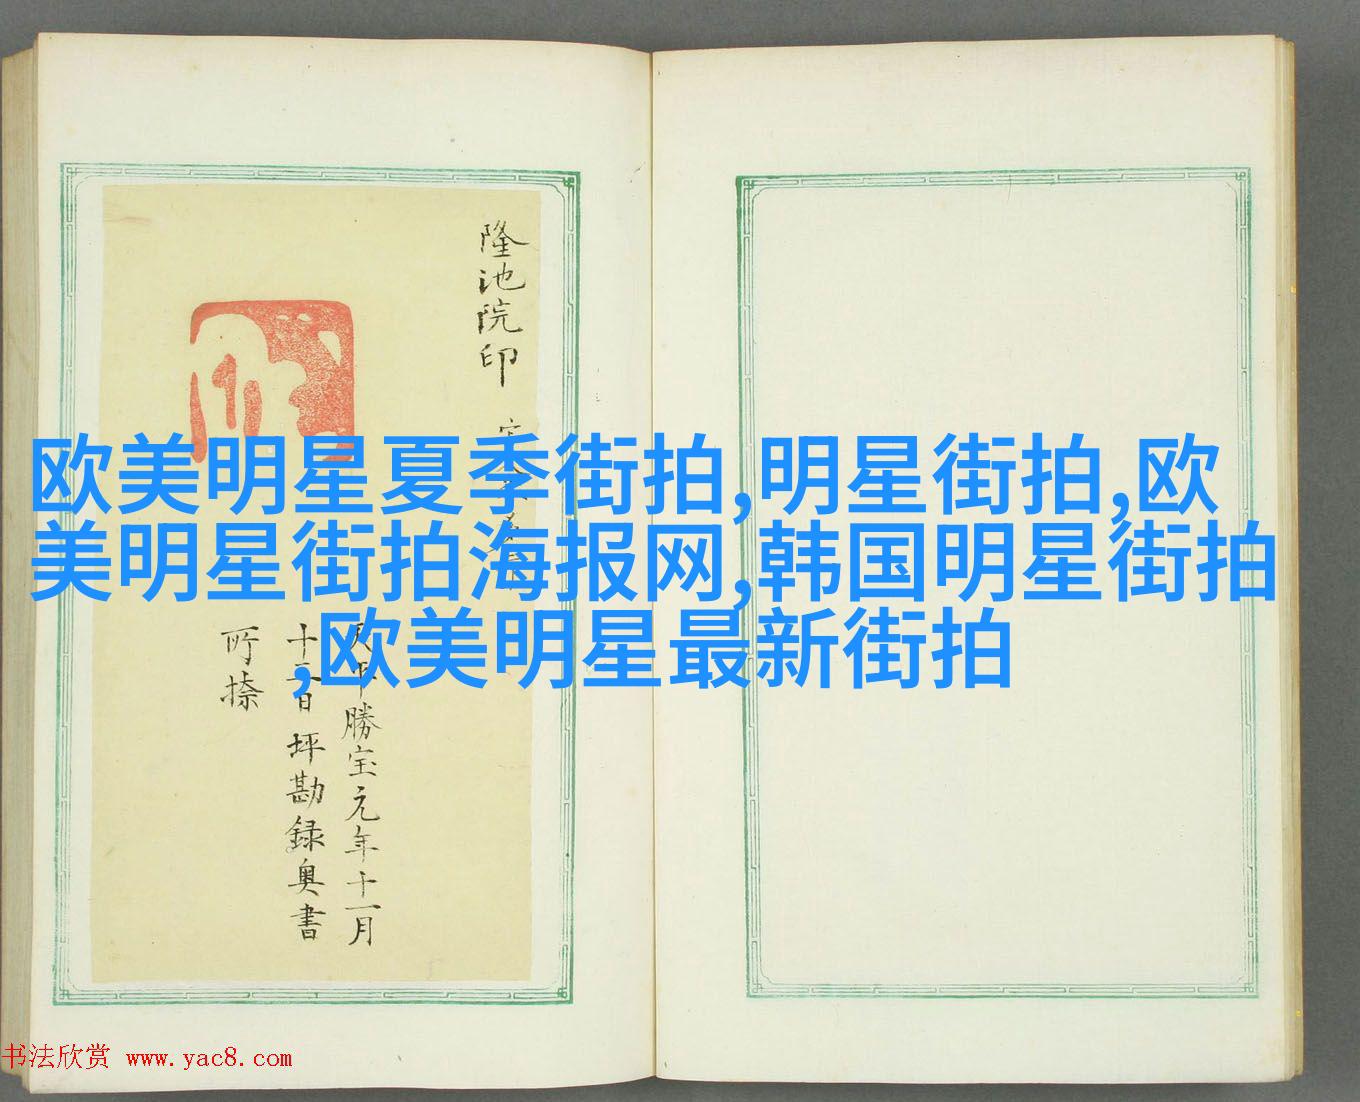 欧美明星夏季街拍,明星街拍,欧
美明星街拍海报网,韩国明星街拍
,欧美明星最新街拍
隆池院印
天平勝宝元年十一月
十五日 坪勘録奥書
所捺
书法欣赏 www.yac8.com